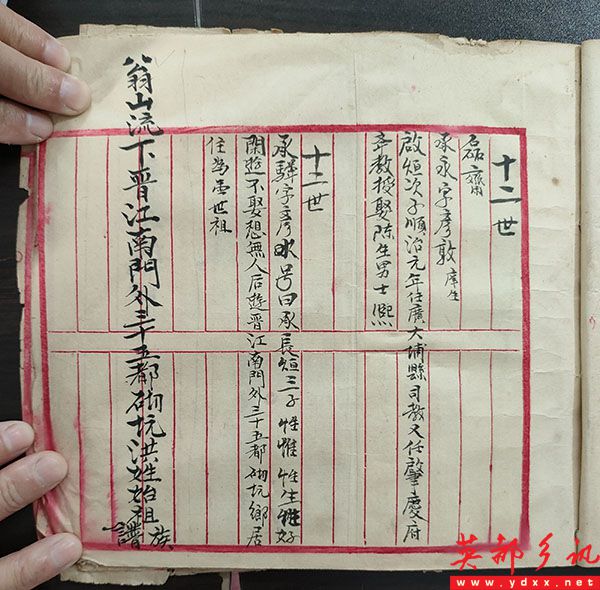 十二世
磊齋
承永字彥敦庠生
啟烜次子順治元年任廣大埔縣司教又任肇慶府
李教授娶陈生男士熙
十二世
承驛字彥水号曰承長烜三子性惟性生性好
閑遊不娶想無人后遊晋江南門外三十五都砌坑鄉居
住為壹世祖
翁山流下晋江南門外三十五都砌坑洪姓始祖
族譜
英都乡讯
www.ydxx.net